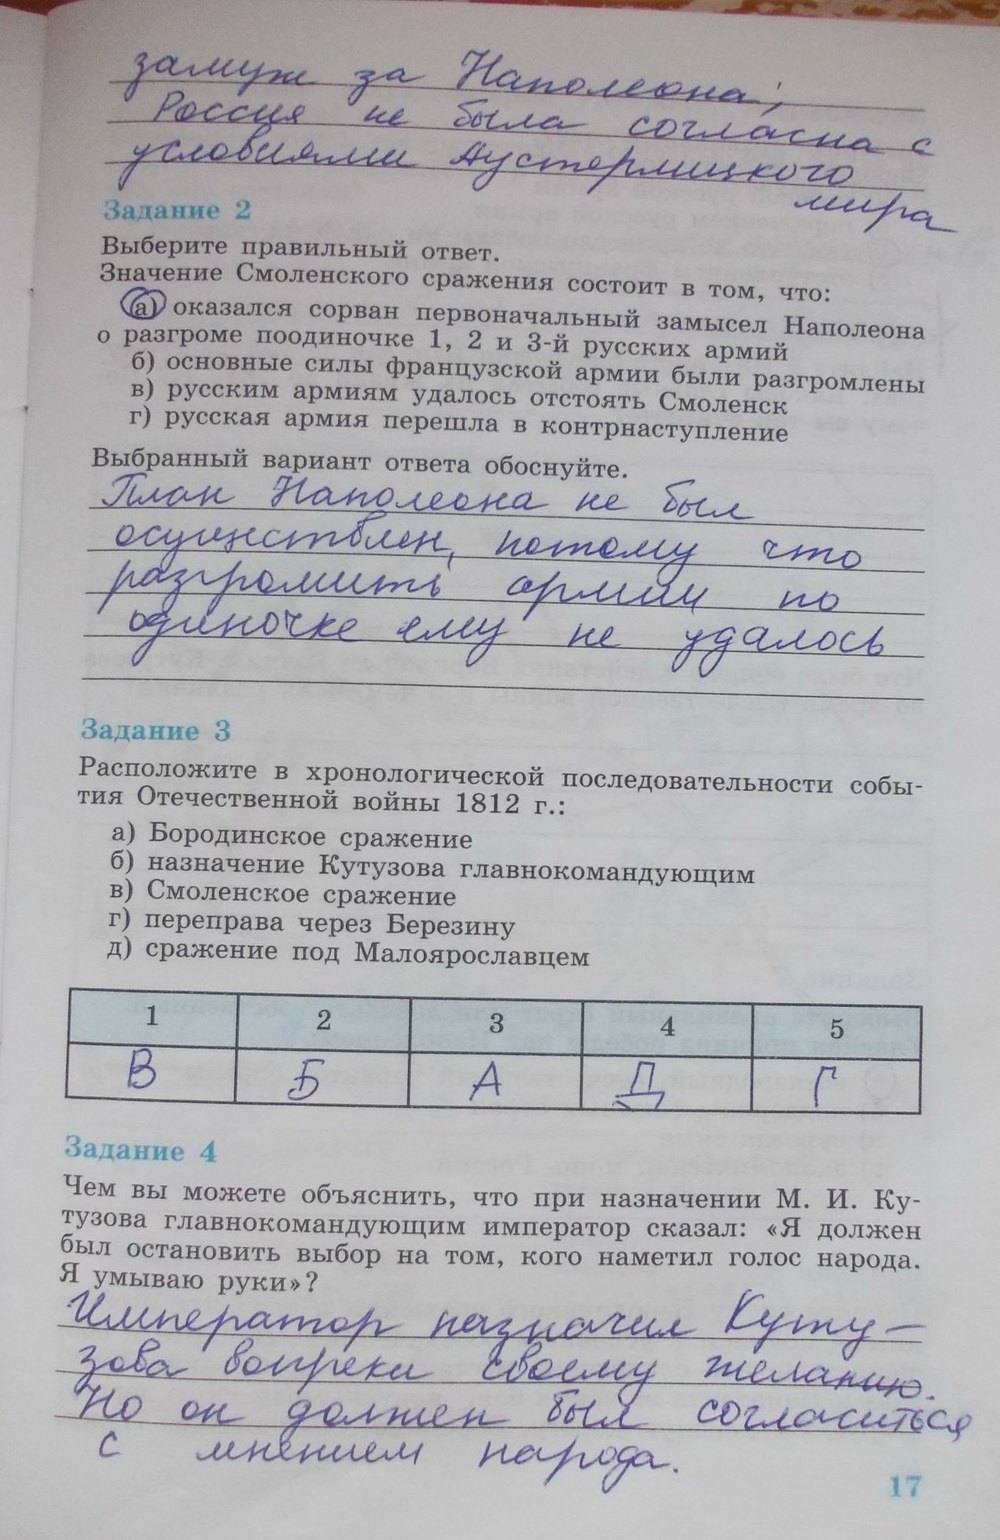 замуж за Наполеона;
Россия не была согласна с
условиями Аустерлицкого
мира
Задание 2
Выберите правильный ответ.
Значение Смоленского сражения состоит в том, что:
а) оказался сорван первоначальный замысел Наполеона
о разгроме поодиночке 1, 2 и 3-й русских армий
б) основные силы французской армии были разгромлены
в) русским армиям удалось отстоять Смоленск
г) русская армия перешла в контрнаступление
Выбранный вариант ответа обоснуйте.
План Наполеона не был
осуществлен, потому что
разгромить армии по
одиночке ему не удалось
Задание 3
Расположите в хронологической последовательности собы-
тия Отечественной войны 1812 г.:
а) Бородинское сражение
б) назначение Кутузова главнокомандующим
в) Смоленское сражение
г) переправа через Березину
д) сражение под Малоярославцем
1 2 3 4 5
В Б А Д Г
Задание 4
Чем вы можете объяснить, что при назначении М. И. Ку-
тузова главнокомандующим император сказал: «Я должен
был остановить выбор на том, кого наметил голос народа.
Я умываю руки»?
Император назначил Куту-
зова вопреки своему желанию.
Но он должен был согласиться
с мнением народа.
17